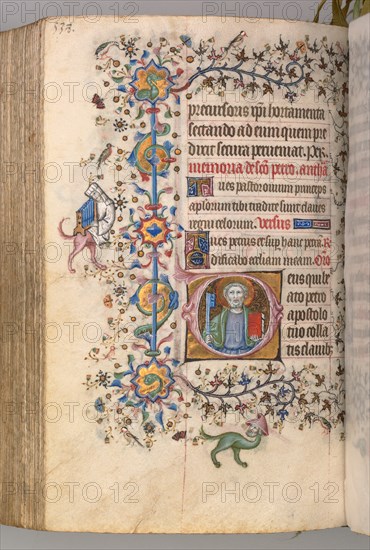 333.
precursoris xp̄i hortamenta
sectando ad eum quem pre
dixit secura perveniat. Per.
memoria de sc̄o petro. anth̄a
Tu es pastor ovium princeps
ap̄lorum tibi tradite sunt claves
regni celorum. Versus
Tu es petrus et sup̄ hanc petrā. R
Edificabo eccl̄iam meam. Oro
Deus qui be
ato petro
apostolo
tuo colla
tis clavib;
PHOTO12